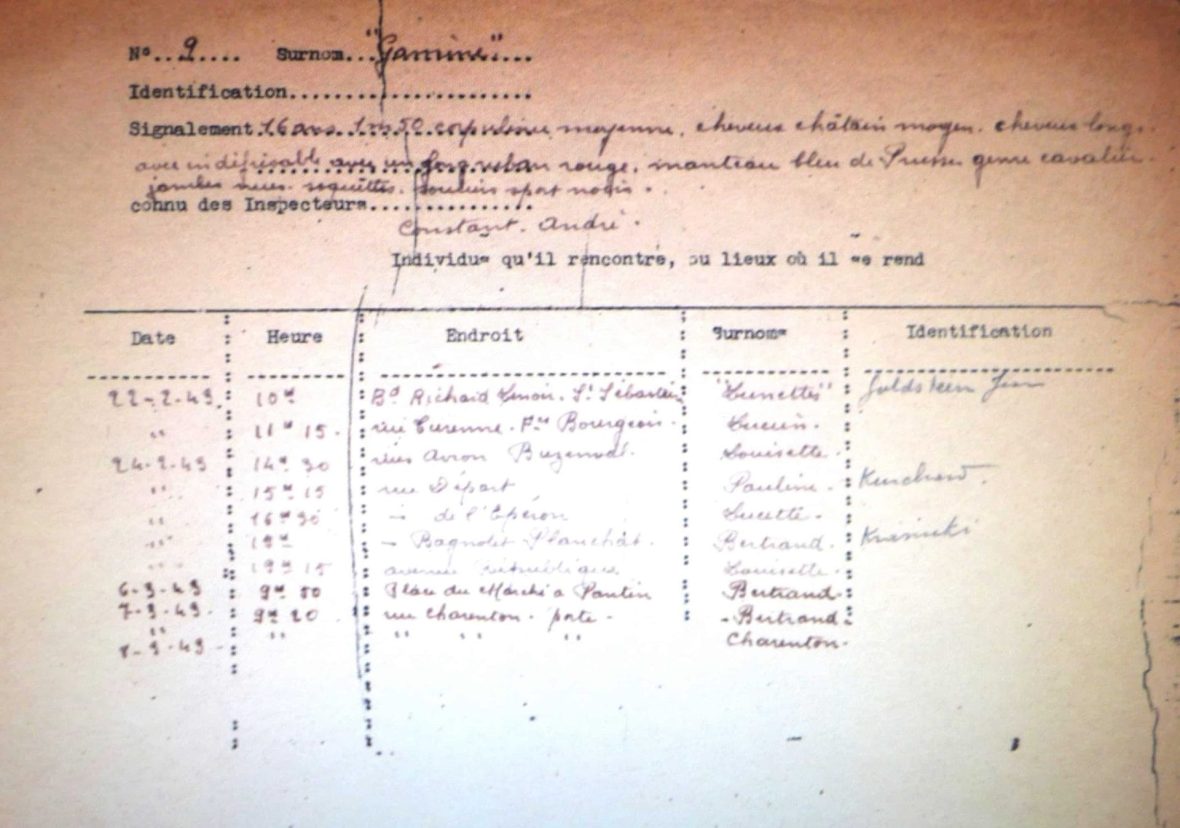 N°..9.... Surnom..."Gamine"...
Identification......................
Signalement 16 ans 1m50 corpulence moyenne, cheveux châtain moyen. cheveux longs.
avec indéfrisable avec un gros ruban rouge, manteau bleu de Prusse genre cavalier.
jambes nues. soquettes. souliers sport noirs.
connu des Inspecteurs...............
Constant. André.
Individus qu'il rencontre, ou lieux où il se rend
Date Heure Endroit Surnoms Identification
22-2-43 10H Bd Richard Lenoir. St Sébastien "Lunettes" Goldstein Jean
" 11H 15. rue Turenne. Fcs Bourgeois. Lucien.
24-2-43 14H 30 rues Avron Buzenval. Louisette.
" 15H 15 rue Départ Pauline.
" 16H 30 - de l'Eperon Lucette.
" 19H - Bagnolet Planchat. Bertrand.
" 19H 15 avenue République Louisette.
6-3-43 9H 50 Place du Marché a Pantin Bertrand.
7-3-43. 9H 20 rue Charenton. porte. - Bertrand.
8-3-43 " " " " Charenton.